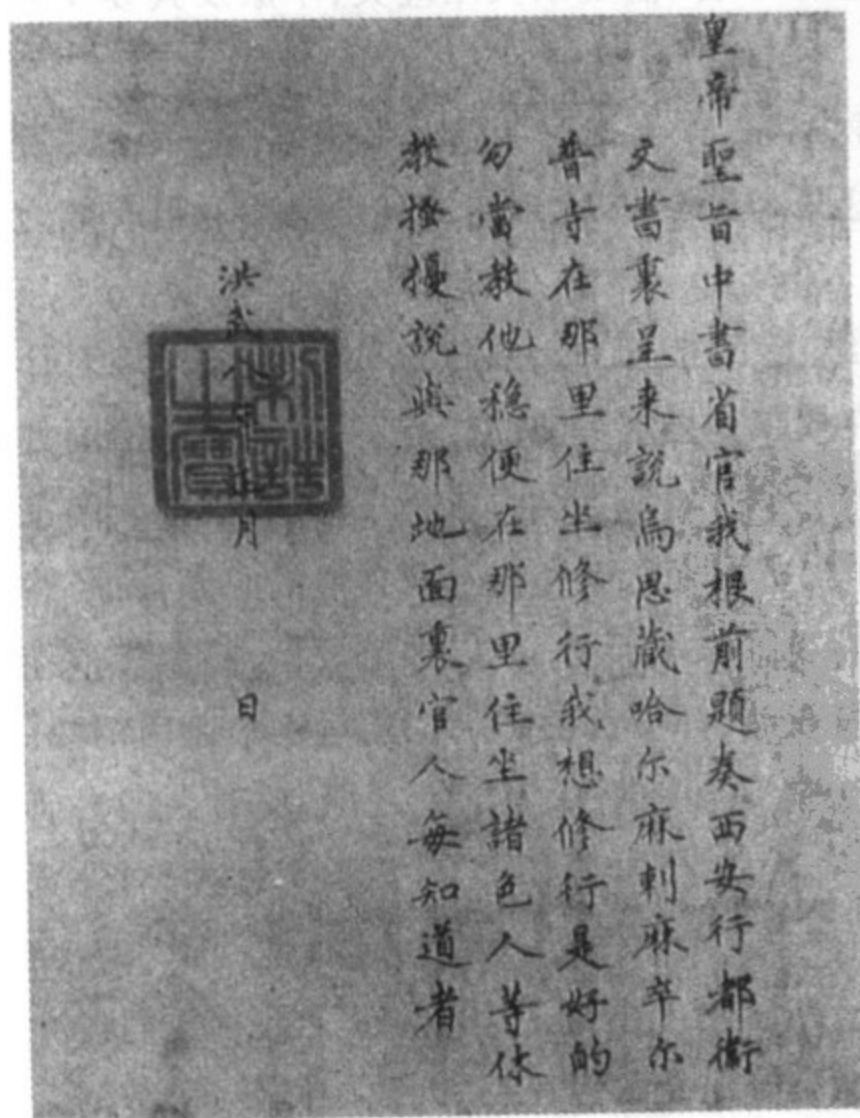 皇帝聖旨中書省官我根前題奏西安行都衛
文書裏呈来說烏思藏哈尔麻剌麻卒尔
普寺在那里住坐修行我想修行是好的
勾當教他穩便在那里住坐諸色人等休
教搔擾說與那地面裏官人每知道者
洪武八年正月 日
制誥之寶